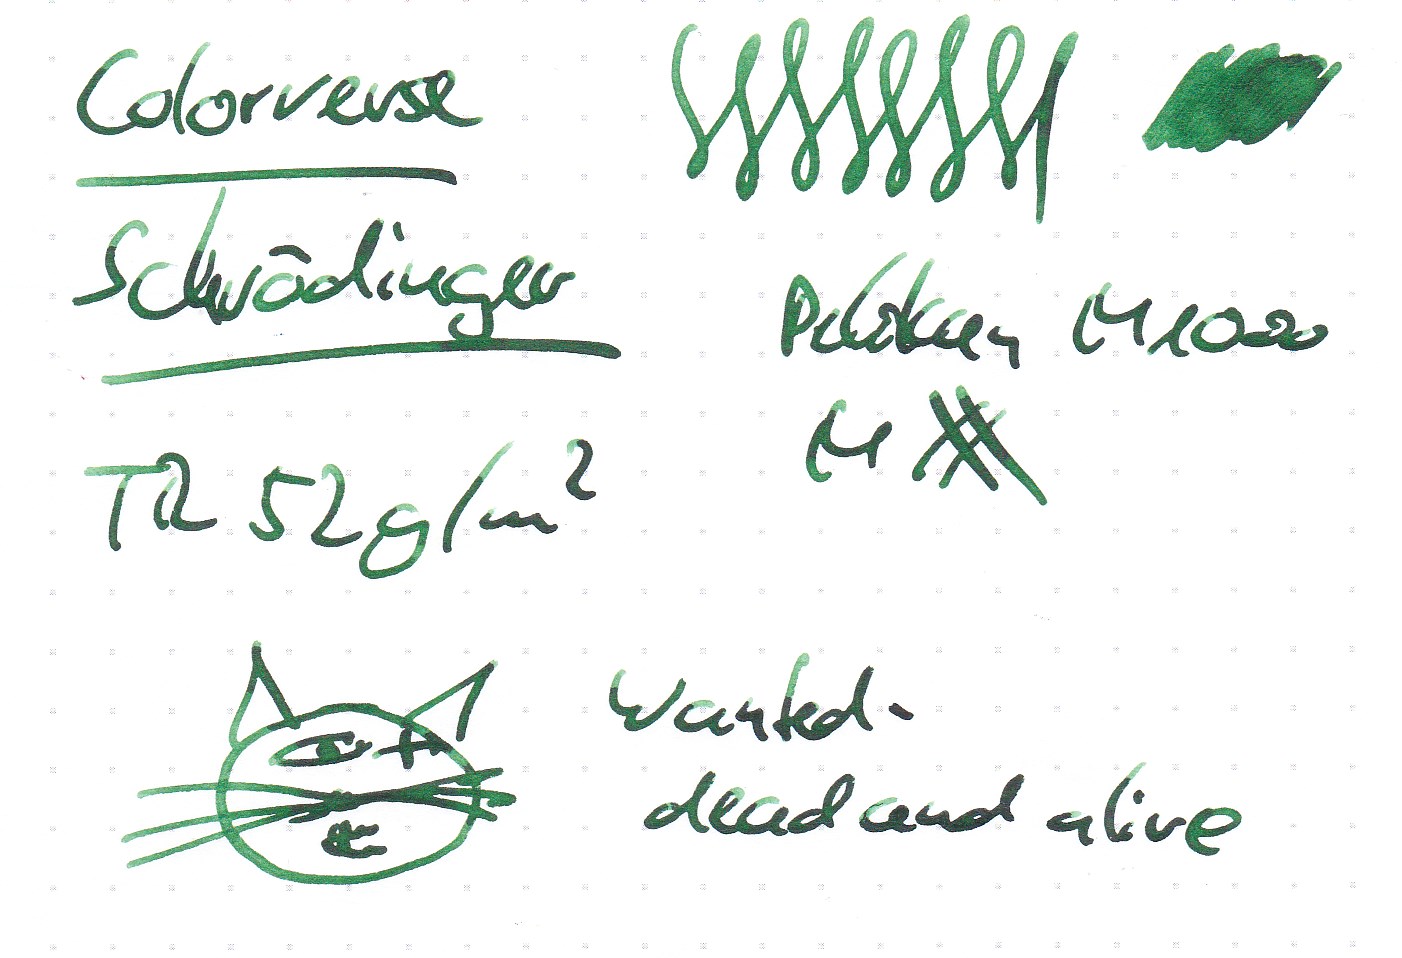 Colorverse
Schrödinger
Pelikan M1000
M
TR 52g/m²
Wanted-
dead and alive